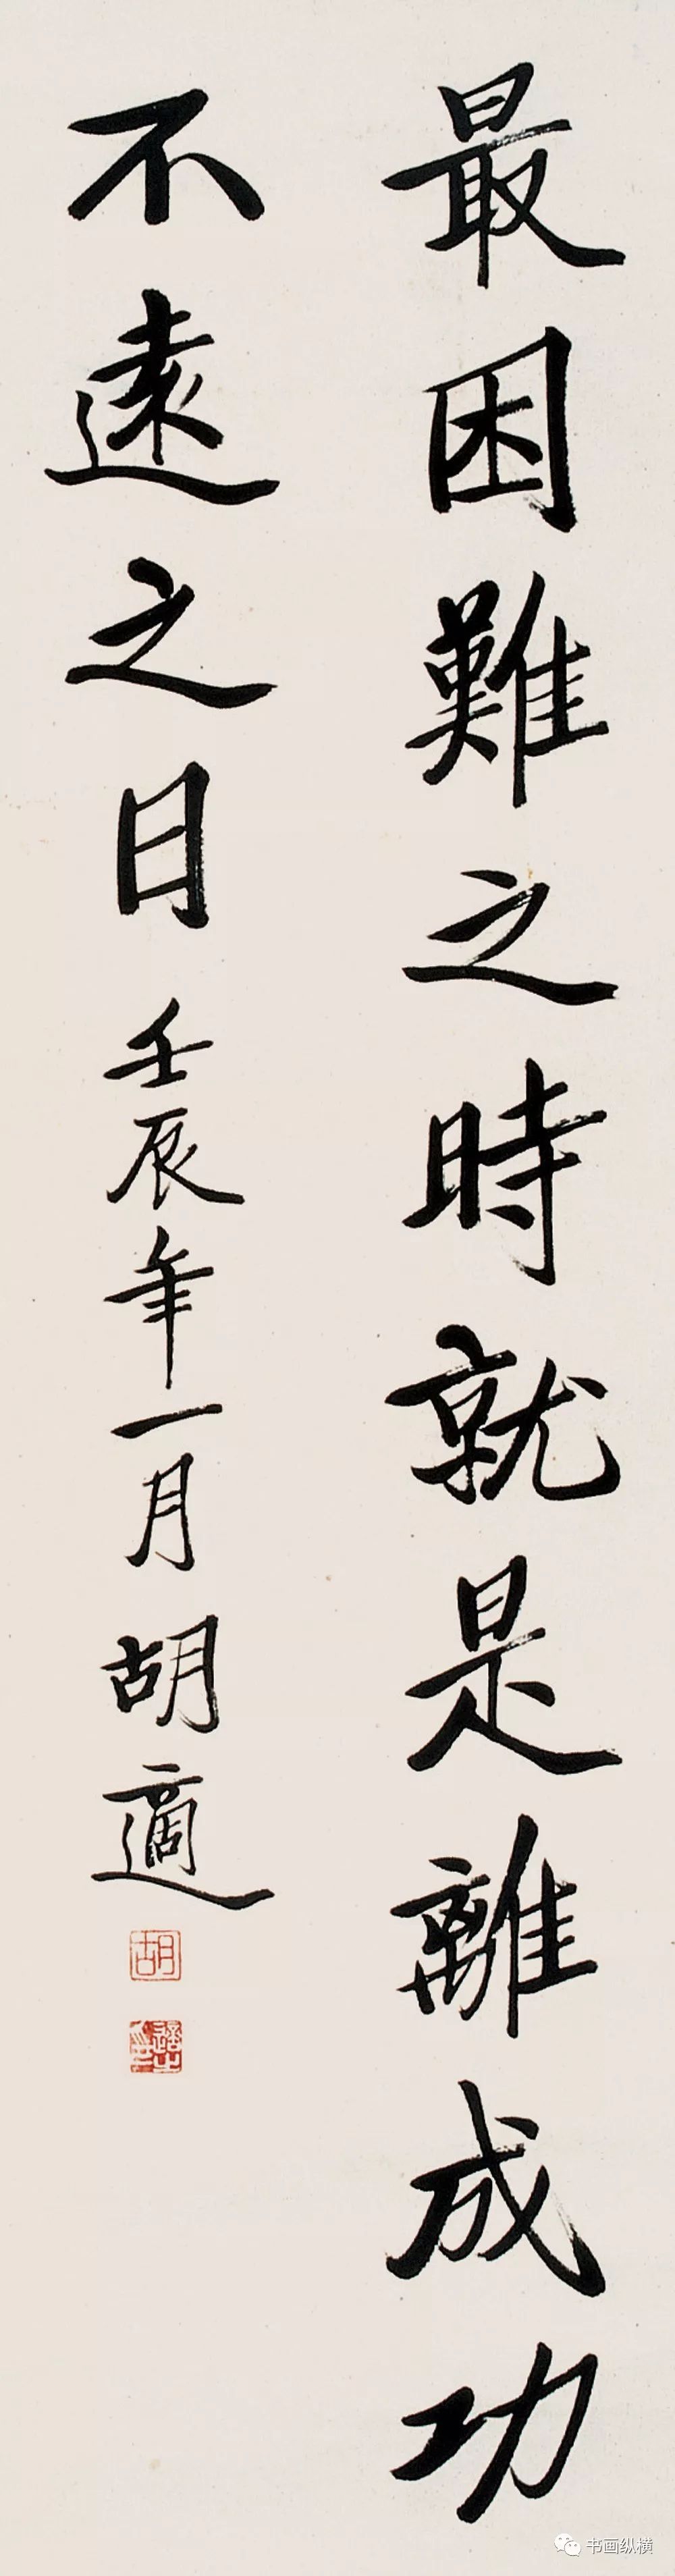 最困難之時就是離成功
不遠之日 壬辰年一月 胡適
胡
书画纵横